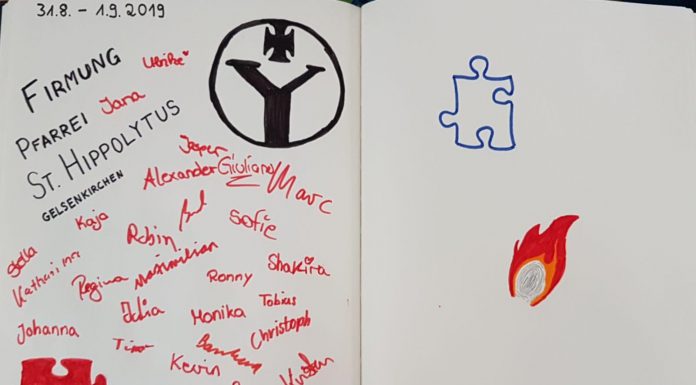 31.8. – 1.9.2019
FIRMUNG
Ulrike
PFARREI
Jana
ST. HIPPOLYTUS
GELSENKIRCHEN
Jesper
Alexander Giuliano Marc
Kaja
Sofie
Robin
Stella
Katharina
Regina
Maximilian
Ronny
Shakira
Julia
Monika
Tobias
Johanna
Christoph
Timo
Kevin